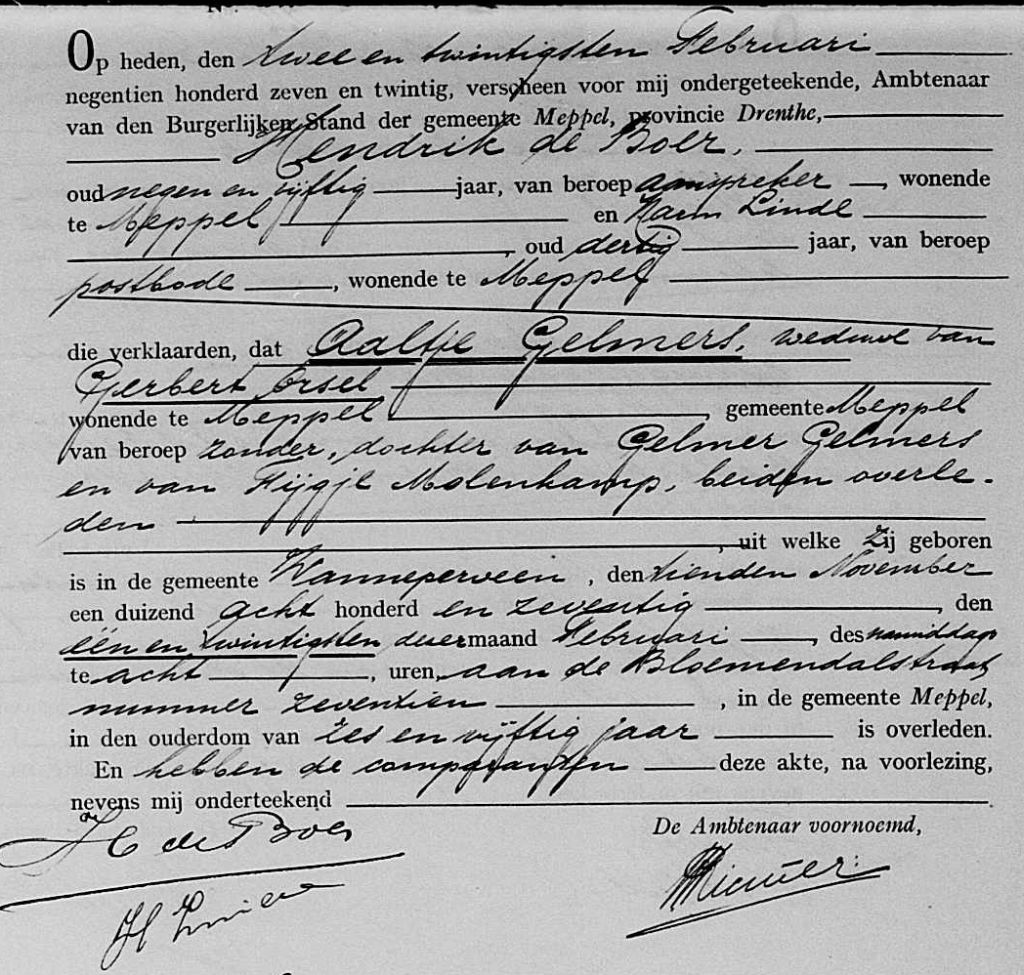 Op heden, den twee en twintigsten Februari
negentien honderd zeven en twintig, verscheen voor mij ondergeteekende, Ambtenaar
van den Burgerlijken Stand der gemeente Meppel, provincie Drenthe,
Hendrik de Boer,
oud negen en vijftig jaar, van beroep aanspreker, wonende
te Meppel en Harm Linde
, oud dertig jaar, van beroep
postbode, wonende te Meppel
die verklaarden, dat Aaltje Gelmers, weduwe van
Gerbert Orsel
wonende te Meppel, gemeente Meppel
van beroep zonder, dochter van Gelmer Gelmers
en van Fijgje Molenkamp, beiden overle-
den
, uit welke zij geboren
is in de gemeente Wanneperveen, den tienden November
een duizend acht honderd en zeventig, den
één en twintigsten dezer maand Februari, des namiddags
te acht, uren, aan de Bloemendalstraat
nummer zeventien, in de gemeente Meppel,
in den ouderdom van zes en vijftig jaar is overleden.
En hebben de comparanten deze akte, na voorlezing,
nevens mij onderteekend.
De Ambtenaar voornoemd,
H de Boer
H